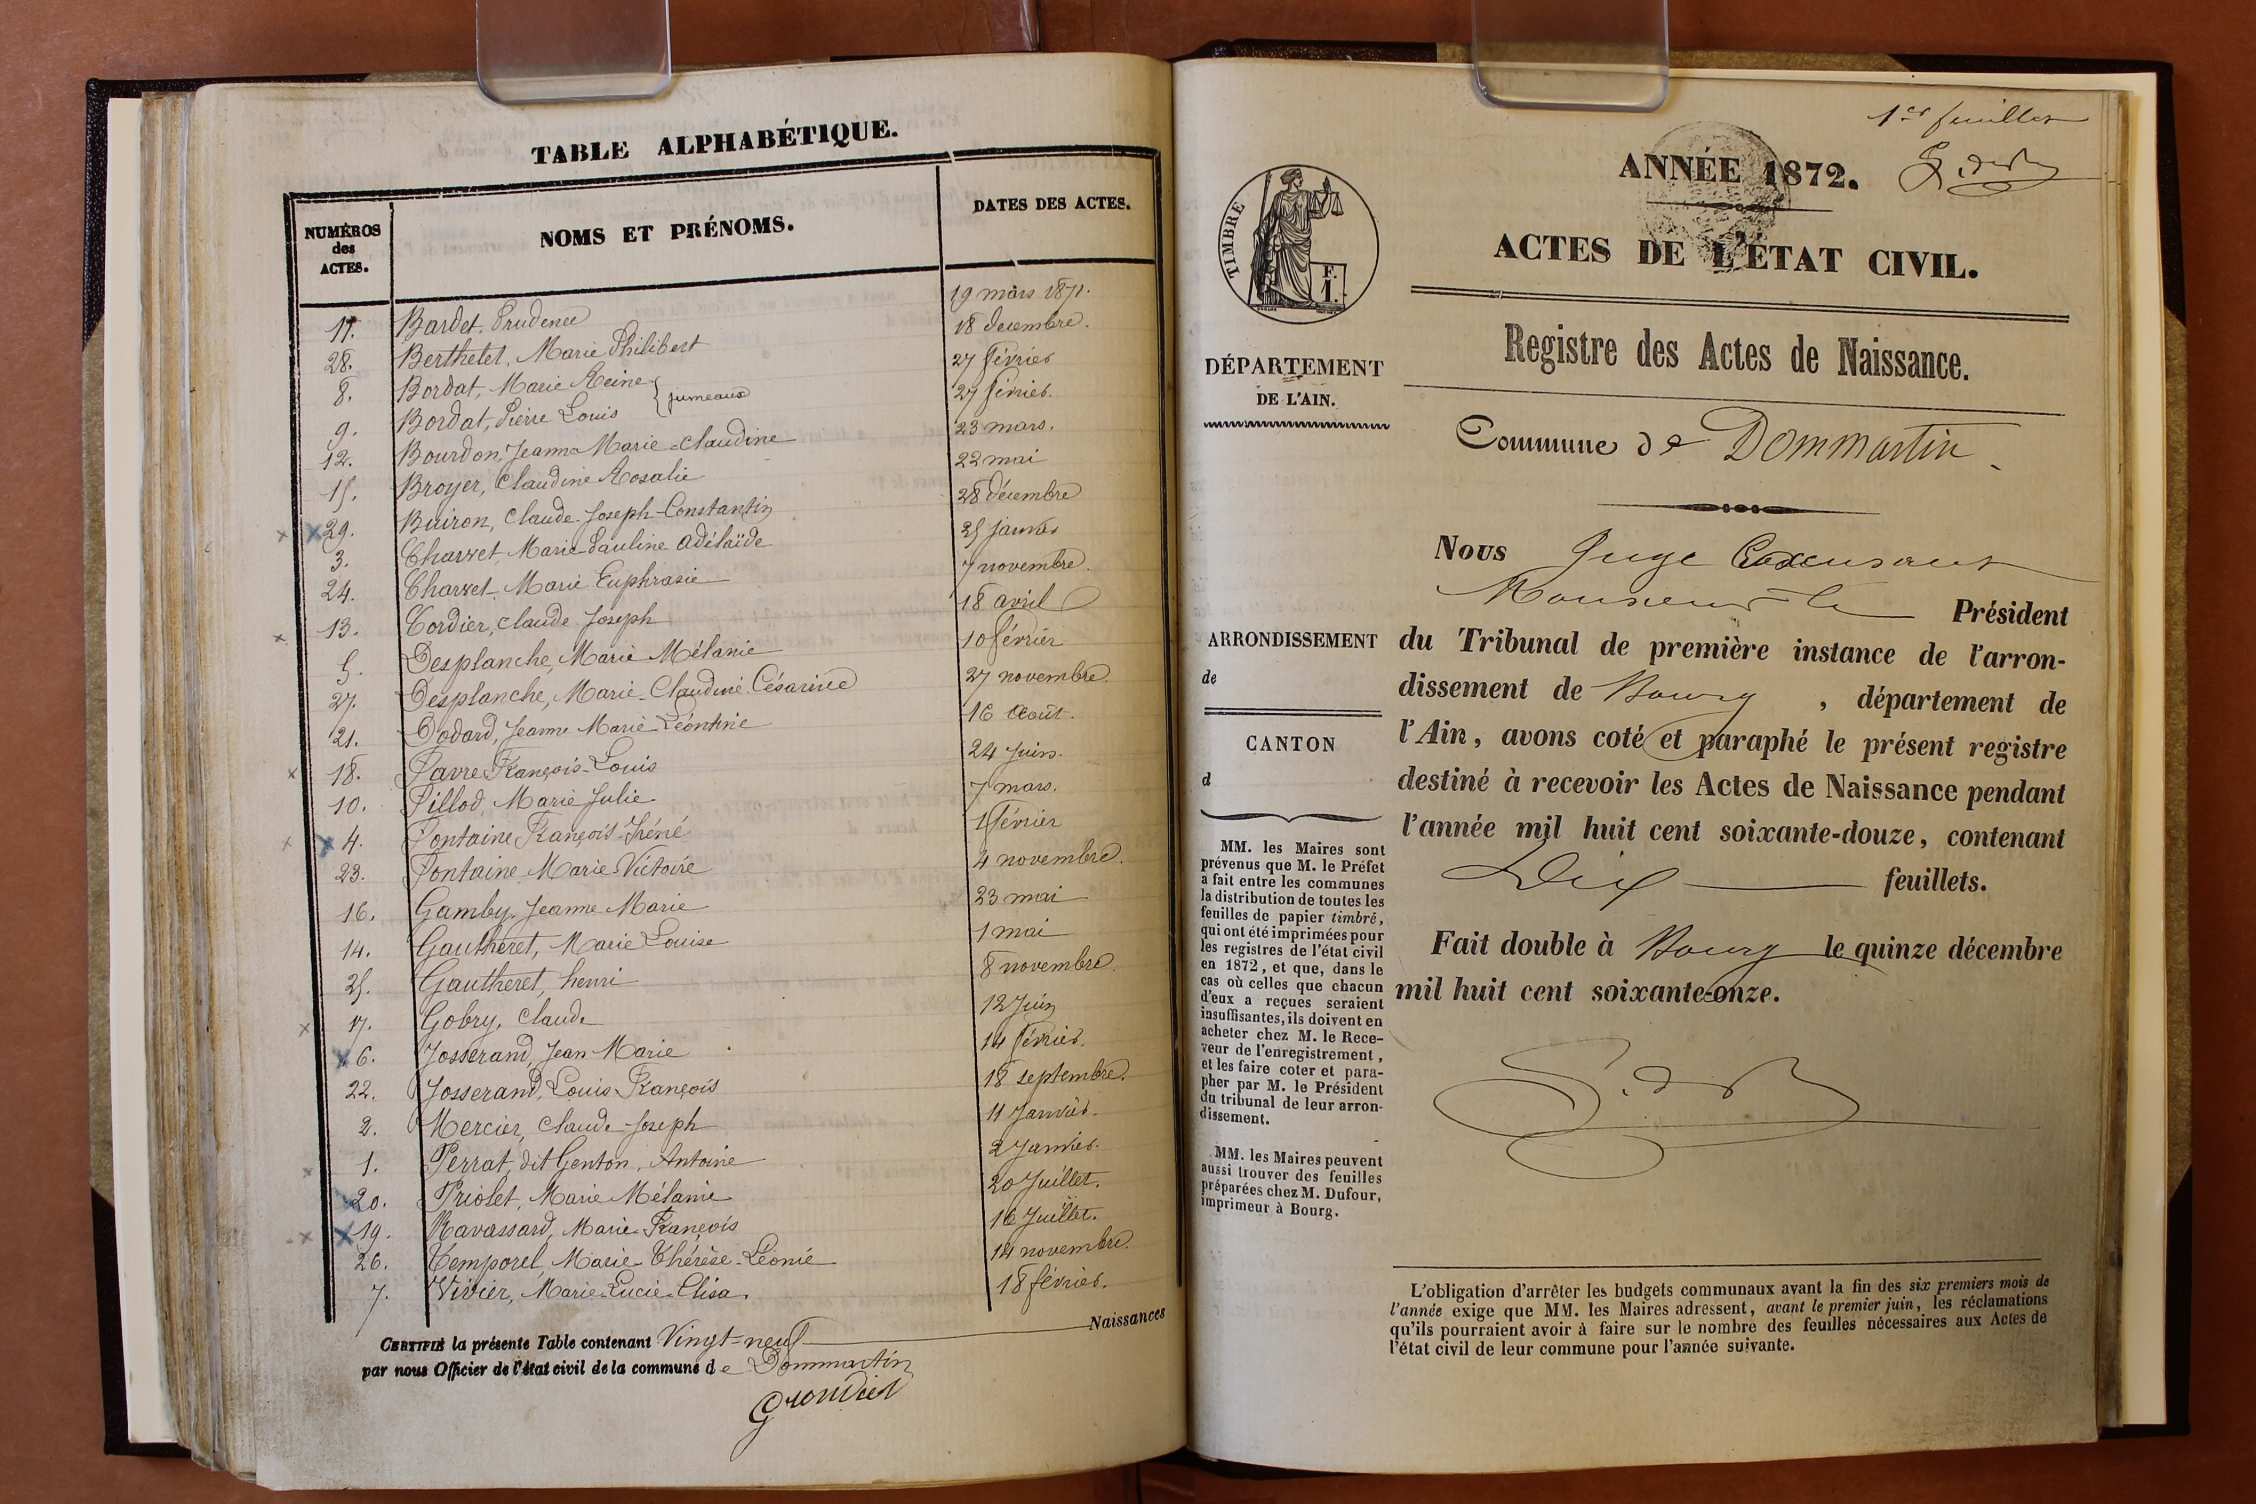 TABLE ALPHABÉTIQUE.
NUMÉROS des ACTES. NOMS ET PRÉNOMS. DATES DES ACTES.
11. Bardet, Prudence 19 mars 1871.
28. Berthelet, Marie Philibert 18 decembre.
8. Bordat, Marie Reine 27 février
9. Bordat, Pierre Louis } jumeaux 27 février.
12. Bourdon, Jeanne Marie-Claudine 23 mars.
15. Broyer, Claudine Rosalie 22 mai
29. Buiron, Claude-Joseph-Constantin 28 décembre
3. Charvet, Marie Pauline Adélaïde 25 janvier
24. Charvet, Marie Euphrasie 7 novembre.
13. Cordier, Claude Joseph 18 avril
5. Desplanche, Marie Mélanie 10 février
27. Desplanche, Marie-Claudine Césarine 27 novembre.
21. Dodard, Jeanne Marie Léontine 16 Août.
18. Favre, François-Louis 24 Juin.
10. Fillod, Marie Julie 7 mars.
4. Fontaine, François-Iréné 1 février
23. Fontaine, Marie Victoire 4 novembre.
16. Gamby, Jeanne Marie 23 mai
14. Gautheret, Marie Louise 1 mai
25. Gautheret, henri 8 novembre.
17. Gobry, Claude 12 Juin
6. Josserand, Jean Marie 14 février.
22. Josserand, Louis François 18 septembre.
2. Mercier, Claude-Joseph 11 Janvier.
1. Perrat, dit Genton, Antoine 2 Janvier.
20. Priolet, Marie Mélanie 20 Juillet.
19. Ravassard, Marie-François 16 Juillet.
26. Temporel, Marie-Thérèse-Léonie 14 novembre.
7. Vivier, Marie-Lucie-Elisa. 18 février.
CERTIFIÉ la présente Table contenant Vingt-neuf Naissances
par nous Officier de l'état civil de la commune de Dommartin
1er feuillet
ANNÉE 1872.
ACTES DE L'ÉTAT CIVIL.
Registre des Actes de Naissance.
Commune de Dommartin.
TIMBRE
F.
I.
DÉPARTEMENT
DE L'AIN.
ARRONDISSEMENT
de
CANTON
d
MM. les Maires sont
prévenus que M. le Préfet
a fait entre les communes
la distribution de toutes les
feuilles de papier timbré,
qui ont été imprimées pour
les registres de l'état civil
en 1872, et que, dans le
cas où celles que chacun
d'eux a reçues seraient
insuffisantes, ils doivent en
acheter chez M. le Rece-
veur de l'enregistrement,
et les faire coter et para-
pher par M. le Président
du tribunal de leur arron-
dissement.
MM. les Maires peuvent
aussi trouver des feuilles
préparées chez M. Dufour,
imprimeur à Bourg.
Nous Juge
Monsieur le Président
du Tribunal de première instance de l'arron-
dissement de Bourg, département de
l'Ain, avons coté et paraphé le présent registre
destiné à recevoir les Actes de Naissance pendant
l'année mil huit cent soixante-douze, contenant
Dix feuillets.
Fait double à Bourg le quinze décembre
mil huit cent soixante-onze.
L'obligation d'arrêter les budgets communaux avant la fin des six premiers mois de
l'année exige que MM. les Maires adressent, avant le premier juin, les réclamations
qu'ils pourraient avoir à faire sur le nombre des feuilles nécessaires aux Actes de
l'état civil de leur commune pour l'année suivante.